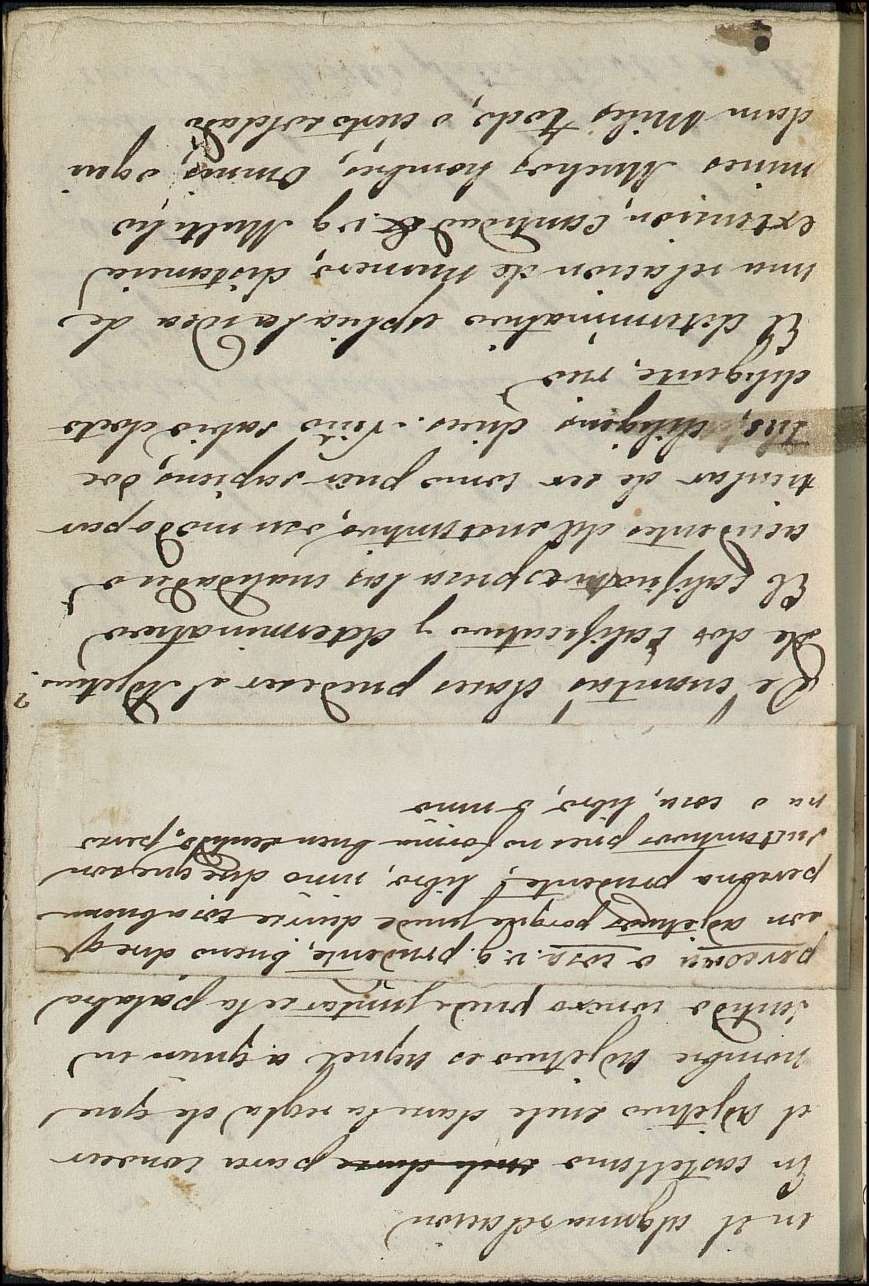 en el alguna relacion
En castellano suele darse para conocer
el Adjetivo suele darse la regla de que
nombre Adjetivo es aquel a quien en
sentido conexo puede juntarse la palabra
persona o cosa. v.g. prudente, bueno dire qe
son adjetivos porque puede decirse cosa buena
persona prudente, libro, niño dire que son
sustantivos pues no forma buen sentido, perso
na o cosa, libro, o niño
De cuantas clases puede ser el Adjetivo?
De dos Calificativo y determinativo
El Calificativo expresa las cualidades o
accidentes del sustantivo, o su modo par
ticular de ser como puer sapiens, doc
tus, diligens, dives. Niño sabio docto
diligente, rico
El determinativo esplica la idea de
una relacion de numero, distancia
extension, cantidad & v.g. Multi ho
mines Muchos hombres, Omnis, o qui
dam Miles todo, o cierto soldado